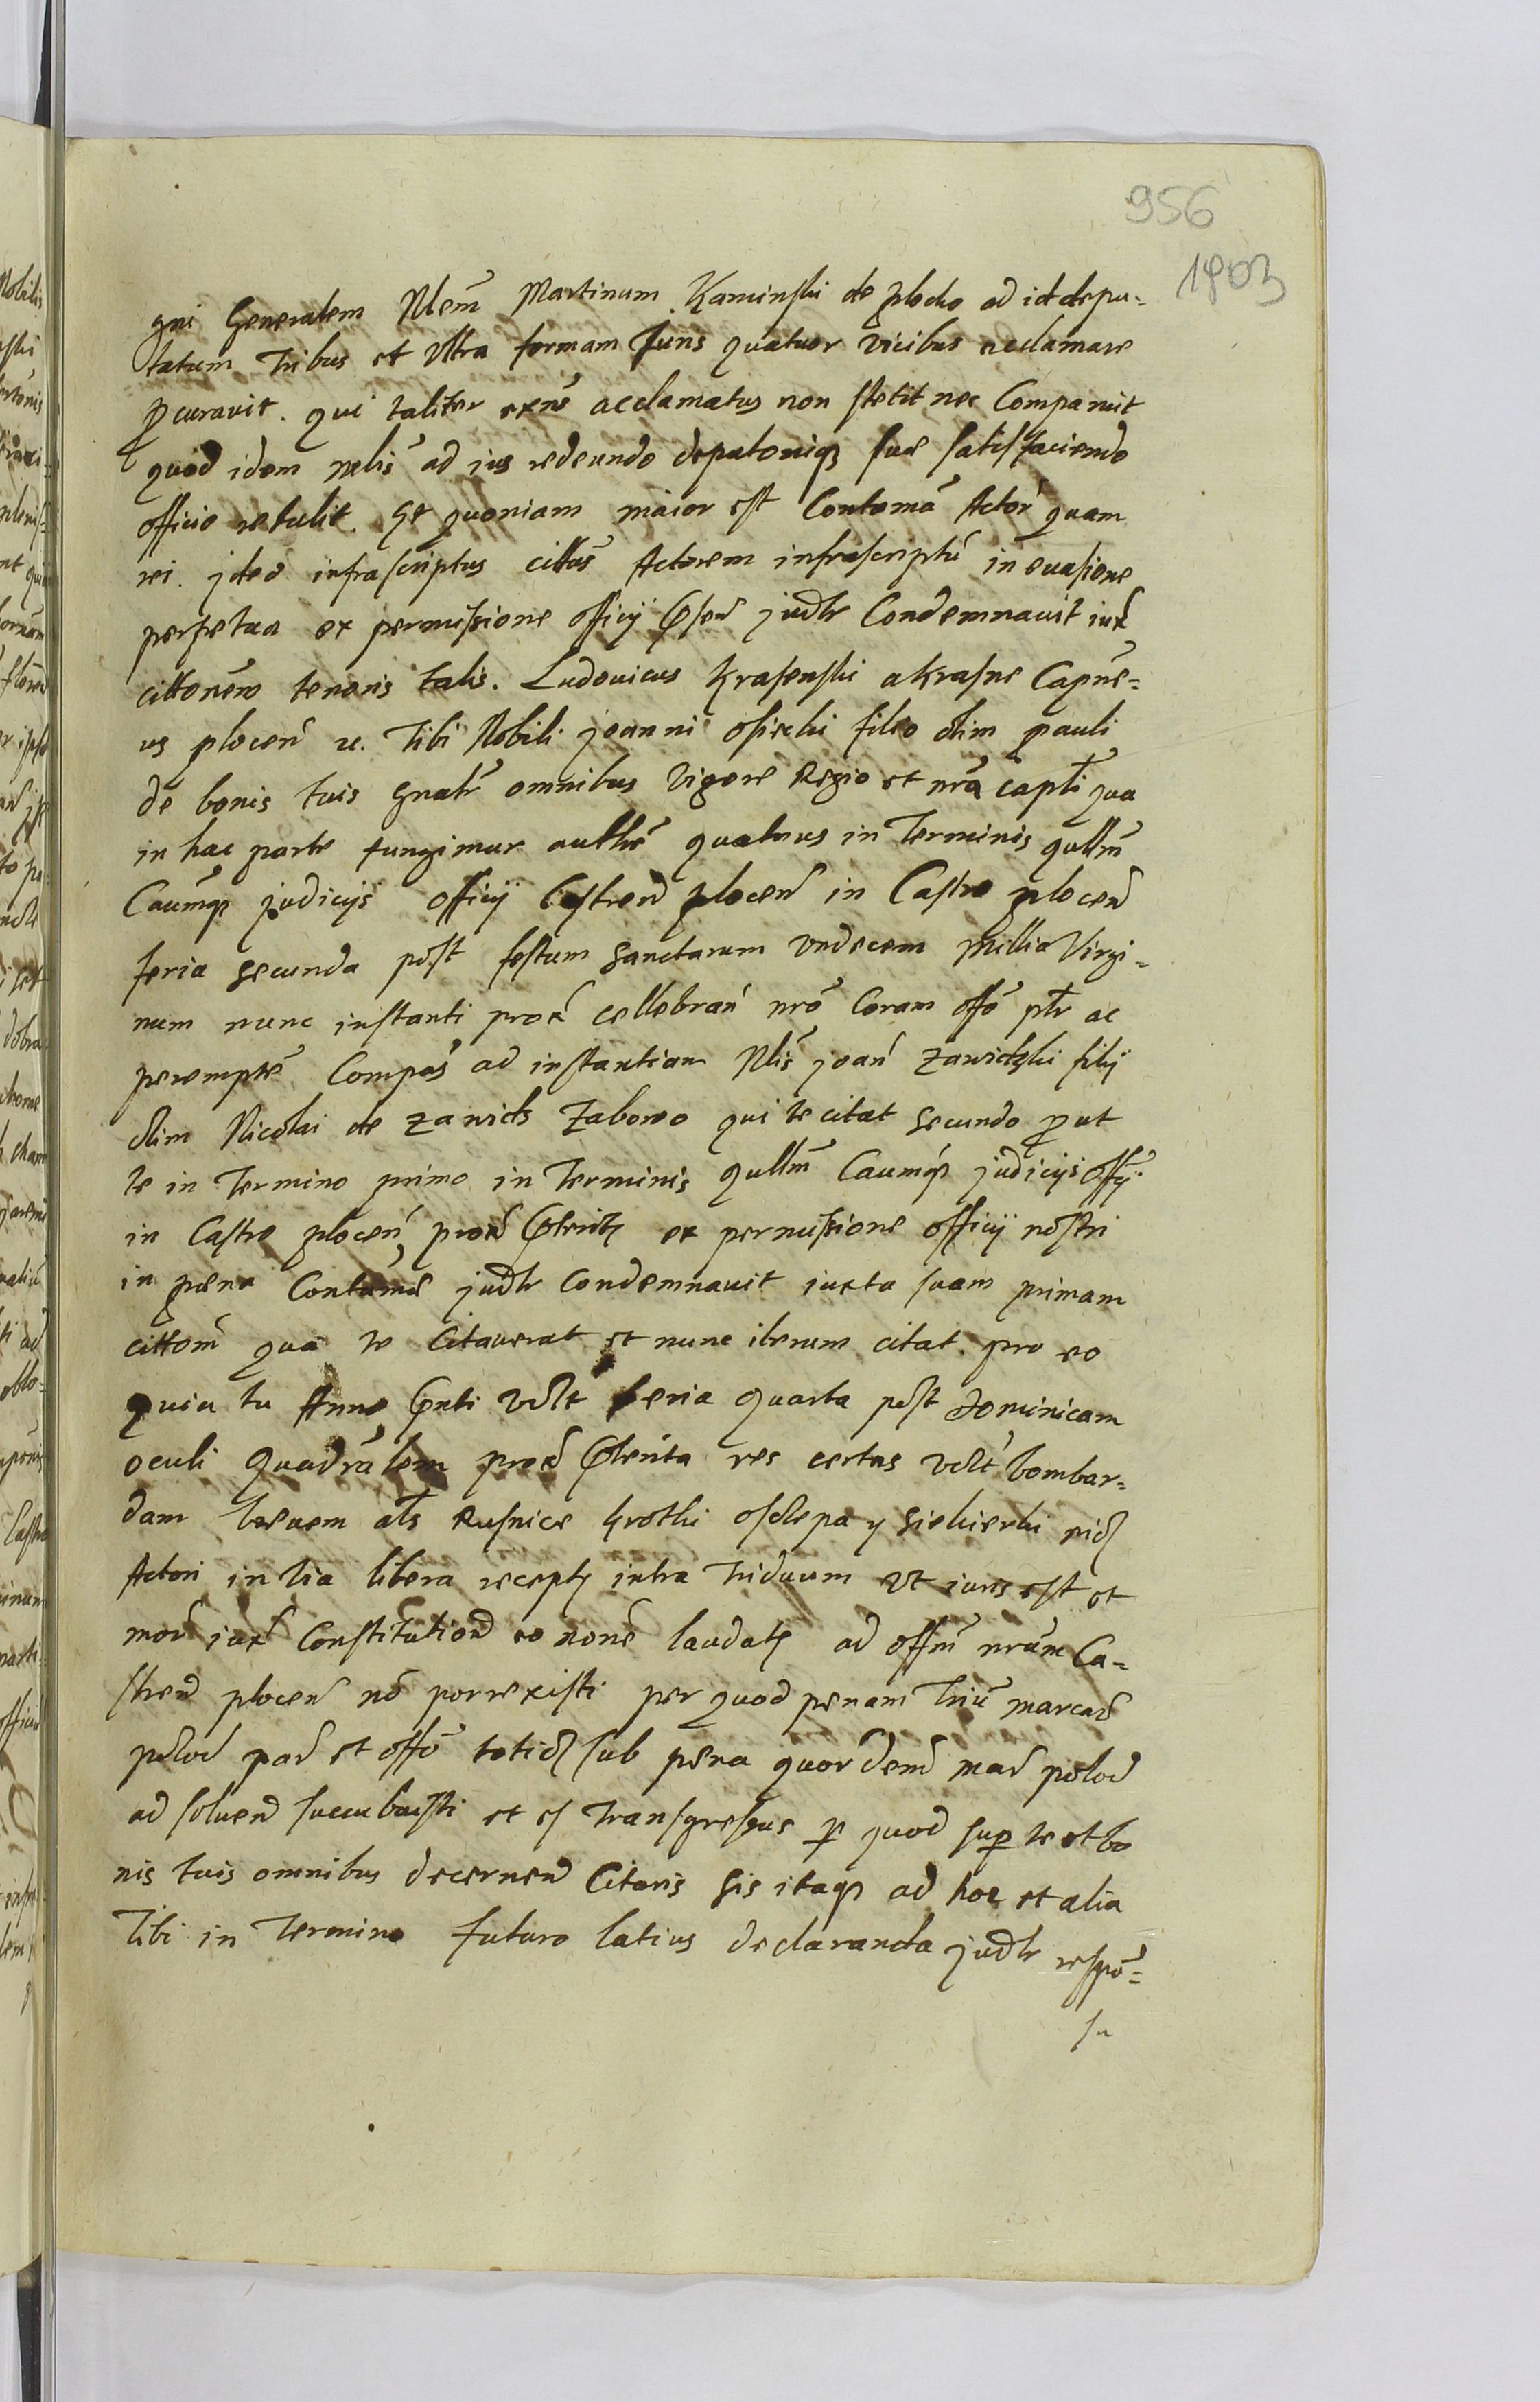 956
1903
gni Generalem Nlem Martinum Kaminski de plocko ad id depu=
tatum tribus et ultra formam Juris quatuor vicibus acclamare
pcuravit. qui taliter exns acclamatus non stetit nec Comparuit
quod idem mlis ad ius redeundo deputoniq sue satisfaciendo
officio retulit. Et quoniam maior est Contoma Actor quam
rei. ideo infrascriptus cittus Actorem infrascriptu in evasione
perpetua ex permissione officij psen judlr Condemnavit iux
cittonem tenoris talis. Ludovicus Krasenski a Krasne Capne=
us plocen zc. tibi Nobili joanni filio olim pauli
de bonis tuis gnalr omnibus vigore Regio et nra capli qua
in hac parte fungimur authe quatenus in Terminis qullm
Caumq judicijs officij Castren plocen in Castro plocen
feria secunda post festum sanctarum undecem Millia Virgi=
num nunc instanti prox cellebran nro Coram offo plr ac
perempte Compas ad instantiam Nlis joan zawidzki filij
olim Nicolai de zawids zabowo qui te citat secundo put
te in termino primo in Terminis qullm Caumq judicijs offij
in Castro plocen prox pterit ex permissione officij nostri
in pena Contuma judlr condemnavit iuxta suam primam
cittom qua te Citaverat et nunc iterum citat. pro eo
quia tu Anno pnti vdlt feria quarta post dominicam
oculi Quadralem prox pterita res certas vdlt bombar=
dam brevem als Rusnice krotki osclepa y siekierki eid
Actori in via libera recept intra triduum ut iuris est et
mor iux Constitution eo none laudat ad offm nrum Ca=
stren plocen no porrexisti per quod penam triu marcar
polod par et offo totid sub pena quordem mar polod
ad soluend succubuisti et es transgressus p quod sup te et bo
nis tuis omnibus decernend Citaris sis itaq ad hoc et alia
tibi in Termino futuro latius declaranda judlr respo=
su